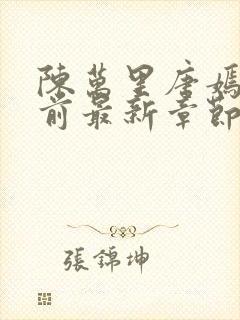 陳萬里唐嫣
前最新章節
張錦坤